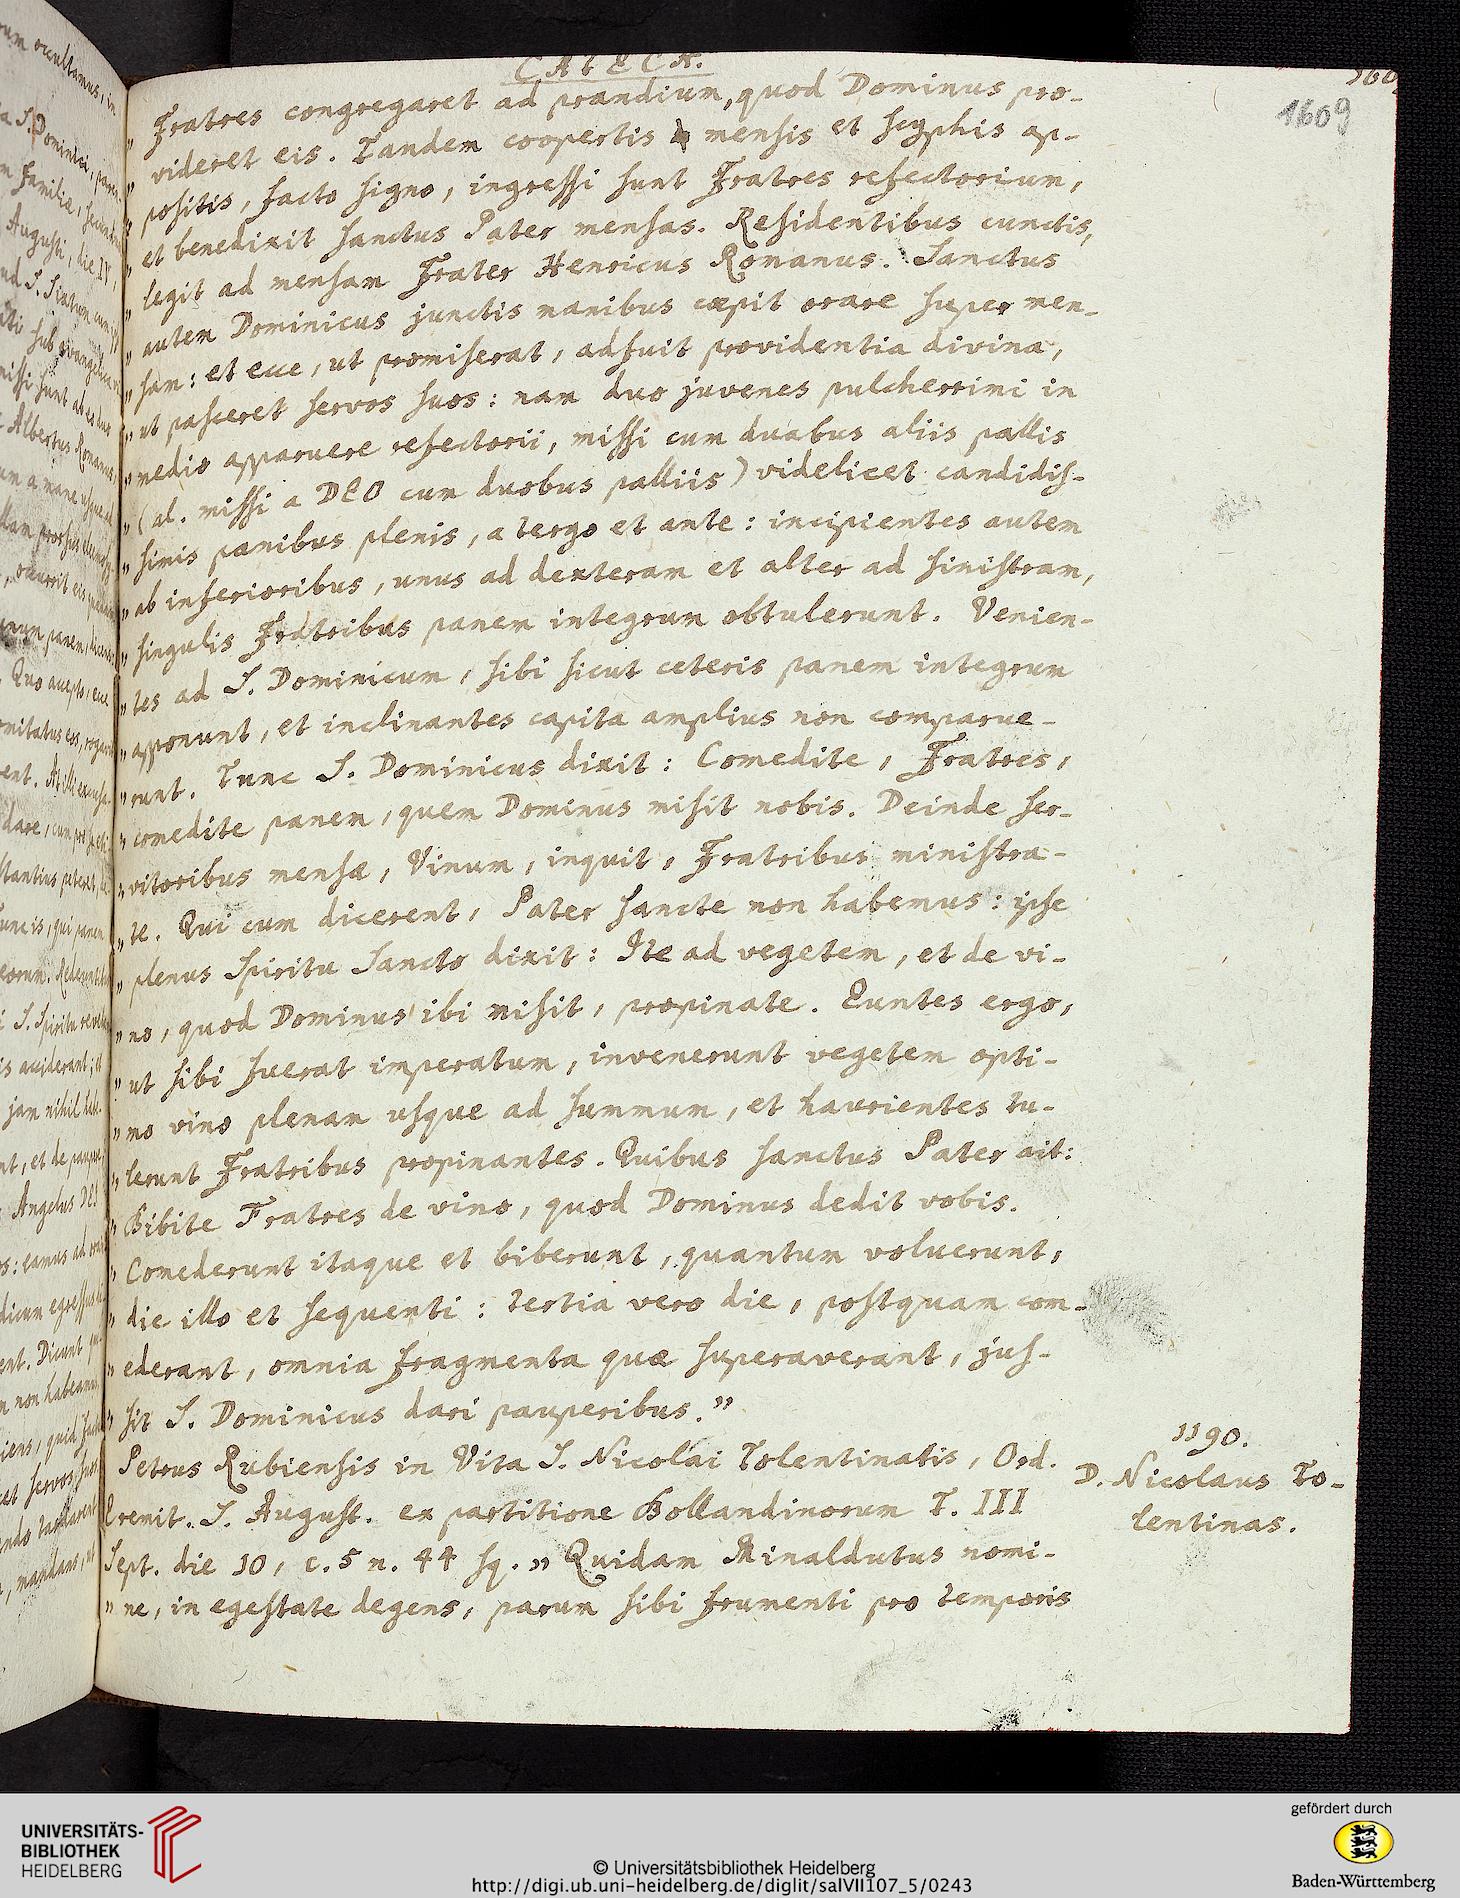 CATECH.
1609
„ Fratres congregaret ad prandium, quod Dominus pro-
„ videret eis. Tandem coopertis mensis et scyphis ap-
„ positis, facto signo, ingressi sunt Fratres refectorium,
„ et benedixit sanctus Pater mensas. Residentibus cunctis,
„ legit ad mensam Frater Henricus Romanus. Sanctus
„ autem Dominicus junctis manibus cœpit orare super men-
„ sam: et ecce, ut promiserat, adfuit providentia divina,
„ ut pasceret servos suos: nam duo juvenes pulcherrimi in
„ medio apparuere refectorii, missi cum duabus aliis pallis
„ (al. missi a DEO cum duobus palliis) videlicet candidis-
„ simis panibus plenis, a tergo et ante: incipientes autem
„ ab inferioribus, unus ad dexteram et alter ad sinistram,
„ singulis Fratribus panem integrum obtulerunt. Venien-
„ tes ad S. Dominicum, sibi sicut ceteris panem integrum
„ apponunt, et inclinantes capita amplius non comparue-
„ runt. Tunc S. Dominicus dixit: Comedite, Fratres,
„ comedite panem, quem Dominus misit nobis. Deinde ser-
„ vitoribus mensæ, Vinum, inquit, Fratribus ministra-
„ te. Qui cum dicerent, Pater sancte non habemus: ipse
„ plenus Spiritu Sancto dixit: Ite ad vegetem, et de vi-
„ no, quod Dominus ibi misit, propinate. Euntes ergo,
„ ut sibi fuerat imperatum, invenerunt vegetem opti-
„ mo vino plenam usque ad summum, et haurientes tu-
„ lerunt Fratribus propinantes. Quibus sanctus Pater ait:
„ Bibite Fratres de vino, quod Dominus dedit vobis.
„ Comederunt itaque et biberunt, quantum voluerunt,
„ die illo et sequenti: tertia vero die, postquam com-
„ ederant, omnia fragmenta quæ superaverant, jus-
„ sit S. Dominicus dari pauperibus.”
Petrus Rubiensis in Vita S. Nicolai Tolentinatis, Ord.
Eremit. S. August. ex partitione Bollandinorum T. III
Sept. die 10, c. 5 n. 44 sq. „ Quidam Minaldutus nomi-
„ ne, in egestate degens, parum sibi frumenti pro temporis
1190.
D. Nicolaus To-
lentinas.
UNIVERSITÄTS-
BIBLIOTHEK
HEIDELBERG
© Universitätsbibliothek Heidelberg
http://digi.ub.uni-heidelberg.de/diglit/salVII107_5/0243
gefördert durch
Baden-Württemberg